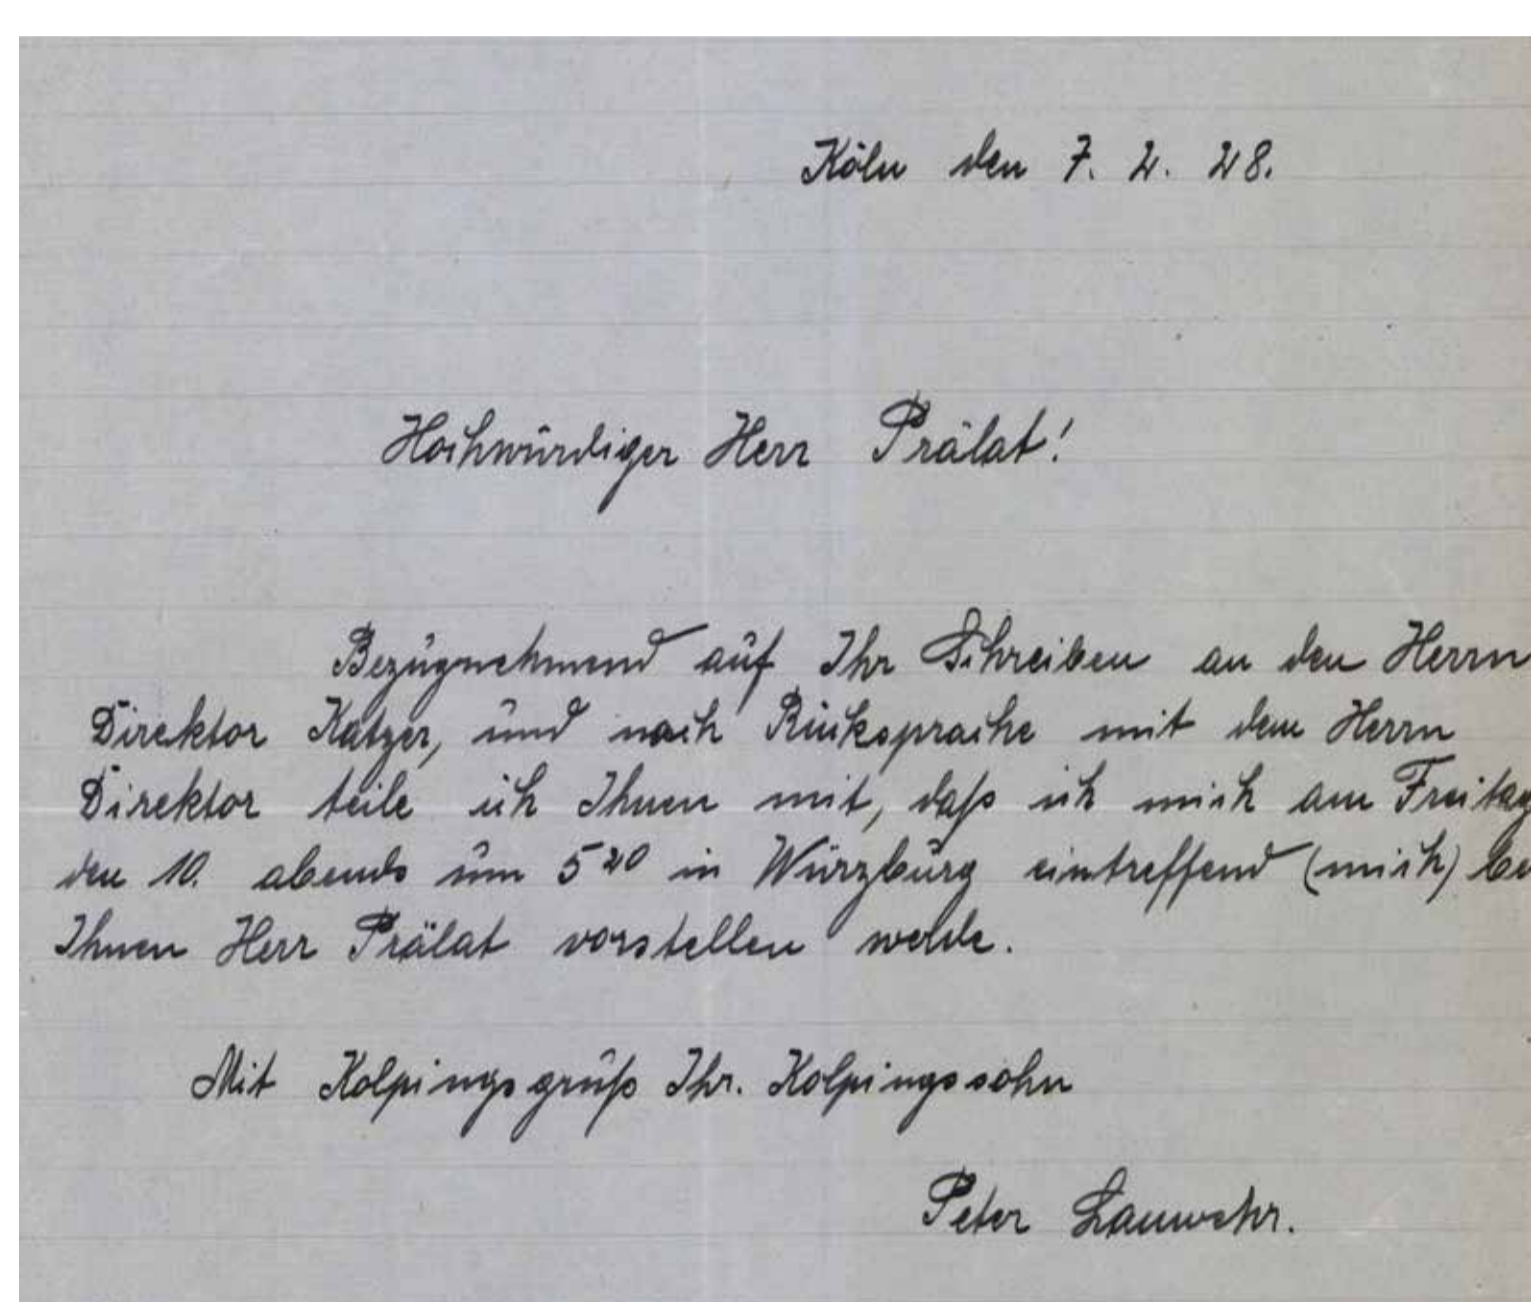 Köln den 7. 2. 28.
Hochwürdiger Herr Prälat!
Bezugnehmend auf Ihr Schreiben an den Herrn
Direktor Katzer, und nach Rücksprache mit dem Herrn
Direktor teile ich Ihnen mit, daß ich mich am Freitag
den 10. abends um 5²⁰ in Würzburg eintreffend (mich) be
Ihnen Herr Prälat vorstellen werde.
Mit Kolpingsgruß Ihr. Kolpingssohn
Peter Lauwehr.